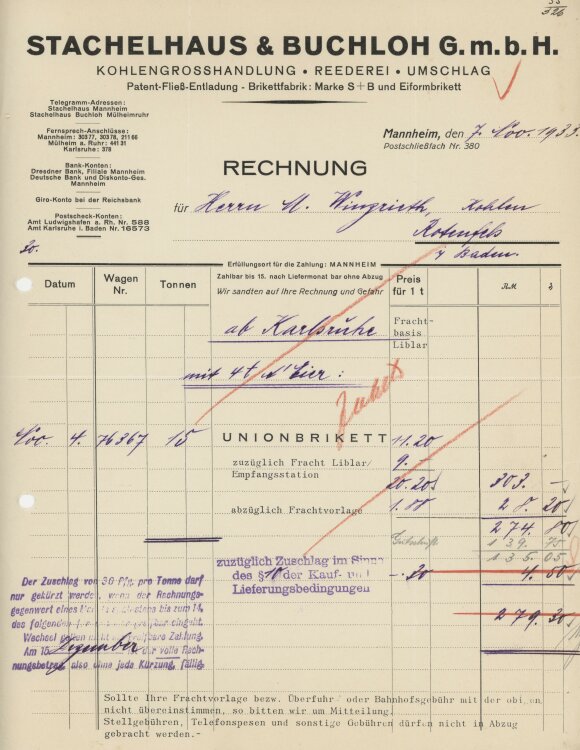 STACHELHAUS & BUCHLOH G.m.b.H.
KOHLENGROSSHANDLUNG • REEDEREI • UMSCHLAG
Patent-Fließ-Entladung - Brikettfabrik: Marke S+B und Eiformbrikett
Telegramm-Adressen:
Stachelhaus Mannheim
Stachelhaus Buchloh Mülheimruhr
Fernsprech-Anschlüsse:
Mannheim: 303 77, 303 78, 211 66
Mülheim a. Ruhr: 441 31
Karlsruhe: 378
Bank-Konten:
Dresdner Bank, Filiale Mannheim
Deutsche Bank und Diskonto-Ges.
Mannheim
Giro-Konto bei der Reichsbank
Postscheck-Konten:
Amt Ludwigshafen a. Rh. Nr. 588
Amt Karlsruhe i. Baden Nr. 16573
Mannheim, den 7. Nov. 1933.
Postschließfach Nr. 380
RECHNUNG
für Herrn A. Wingrieth, Kohlen
Rotenfels
i/ Baden.
20.
Erfüllungsort für die Zahlung: MANNHEIM
Zahlbar bis 15. nach Liefermonat bar ohne Abzug
Wir sandten auf Ihre Rechnung und Gefahr
Datum
Wagen Nr.
Tonnen
Preis für 1 t
RM
ab Karlsruhe
Fracht-
basis
Liblar
mit 4t N'Eier:
Nov. 4. 76367 15 UNIONBRIKETT 11.20
zuzüglich Fracht Liblar/ 9.-
Empfangsstation 20.20 303.-
abzüglich Frachtvorlage 1.88 28.20
274.80
Gutschrift 139.75
135.05
zuzüglich Zuschlag im Sinne
des § 10 der Kauf- und -.30 4.50
Lieferungsbedingungen
279.30
Der Zuschlag von 30 Pfg. pro Tonne darf
nur gekürzt werden, wenn der Rechnungs-
gegenwert eines
bis zum 14.
des folgenden
eingeht.
Wechsel gelten nicht
Zahlung.
Am 15. Dezember
der volle Rech-
nungsbetrag, also ohne jede Kürzung, fällig.
Sollte Ihre Frachtvorlage bezw. Überfuhr- oder Bahnhofsgebühr mit der obigen
nicht übereinstimmen, so bitten wir um Mitteilung.
Stellgebühren, Telefonspesen und sonstige Gebühren dürfen nicht in Abzug
gebracht werden.-